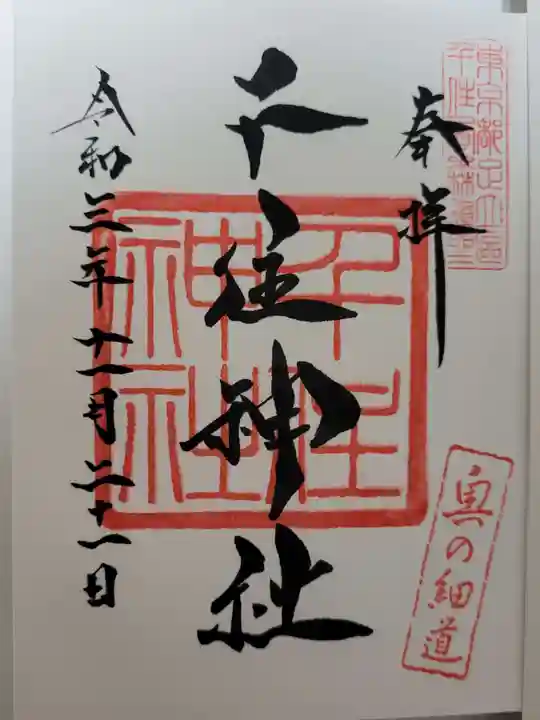 東京都足立区
千住宮森道里
奉拝
奥の細道
千住神社
千住
神社
令和三年十一月二十一日